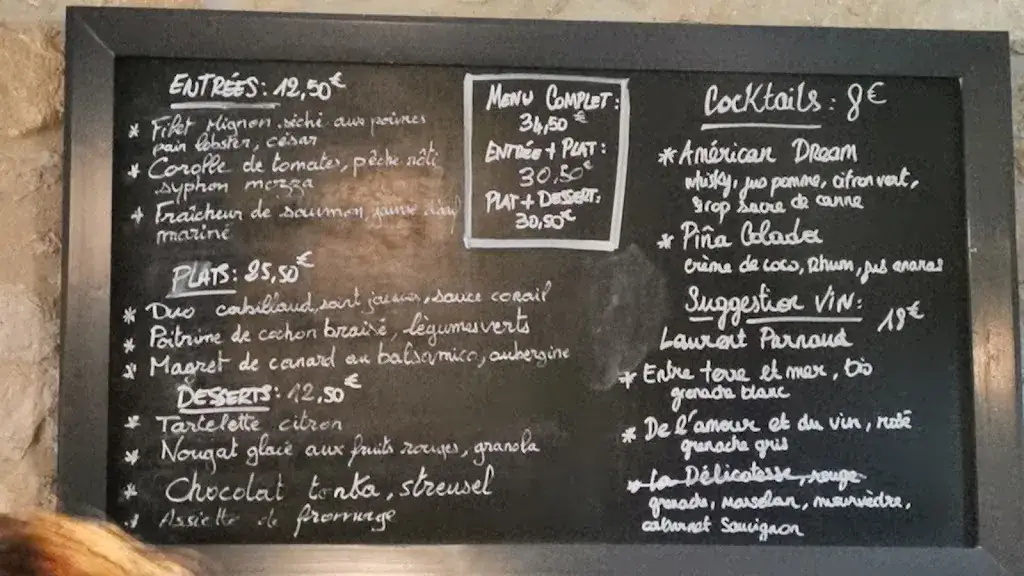 ENTRÉES: 12,50€
* Filet Mignon séché aux poivres
pain lobster, césar
* Corolle de tomates, pêche rôti
syphon mozza
* Fraîcheur de saumon, jaune d'œuf
mariné
PLATS: 25,50€
* Duo cabillaud, saint jacques, sauce corail
* Poitrine de cochon braisé, légumes verts
* Magret de canard au balsamico, aubergine
DESSERTS: 12,50€
* Tartelette citron
* Nougat glacé aux fruits rouges, granola
* Chocolat tonka, streusel
* Assiette de fromage
MENU COMPLET:
34,50€
ENTRÉE + PLAT:
30,50€
PLAT + DESSERT:
30,50€
Cocktails: 8€
* Américan Dream
whisky, jus pomme, citron vert,
sirop sucre de canne
* Piña Colada
crème de coco, Rhum, jus ananas
Suggestion VIN:
18€
Laurent Parnaud
* Entre terre et mer,
grenache blanc
* De l'amour et du vin, rosé
grenache gris
* La Délicatesse, rouge
grenache, marselan, mourvèdre,
cabernet Sauvignon